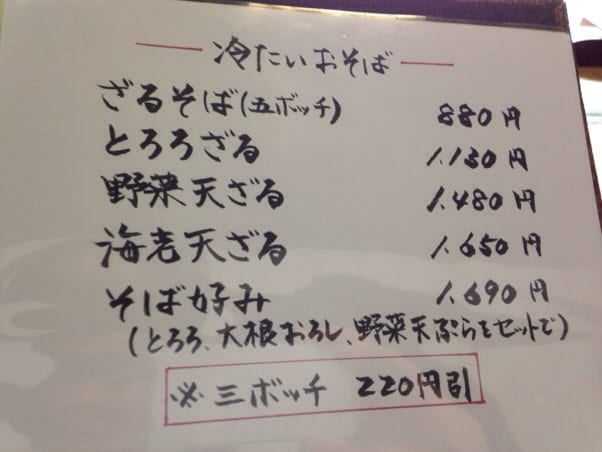 冷たいおそば
ざるそば(五ボッチ) 880円
とろろざる 1.130円
野菜天ざる 1.480円
海老天ざる 1.650円
そば好み 1.690円
(とろろ、大根おろし、野菜天ぷらをセットで)
※三ボッチ 220円引